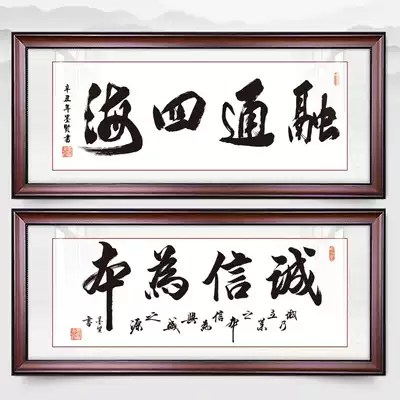 融通四海
辛丑年墨賢書
誠信為本
誠乃立業之本信為興盛之源
墨賢書